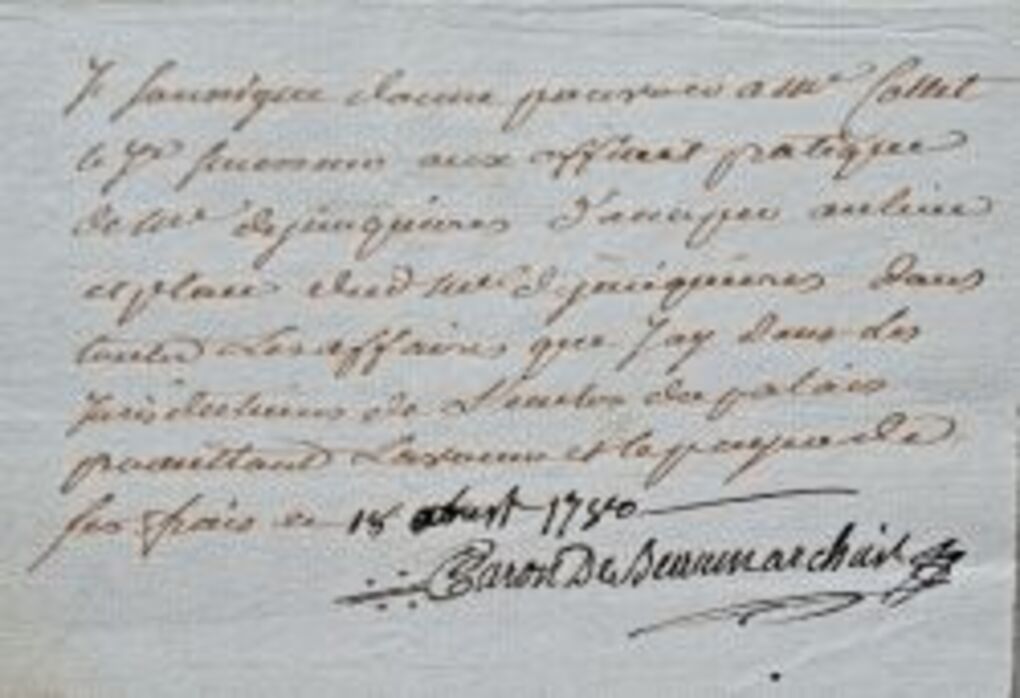 Je soussigné donne pouvoir a Mr Collet
le Je successeur aux office et pratique
de Mr dejunquieres d'occuper au lieu
et place dud Mr Dejunquieres dans
toutes Les affaires que J'ay dans Les
Jurisdictions de L'enclos du palais
promettant L'avouer et le payer de
ses frais ce 18 aoust 1780
Caron De Beaumarchais